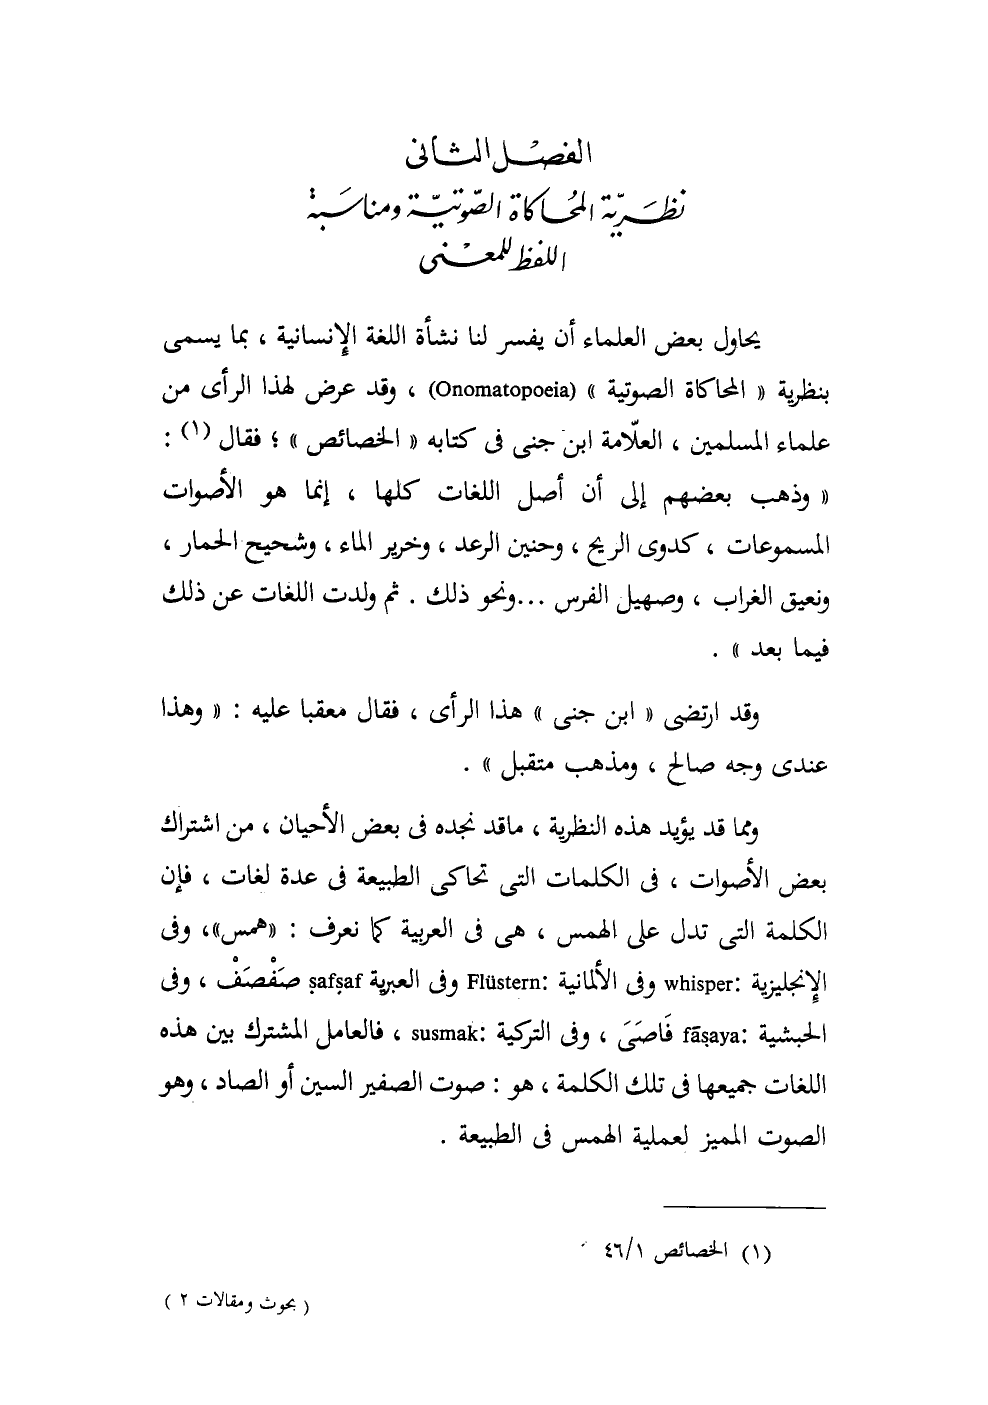 الفصل الثانى
نظريّة المُحاكاة الصّوتيّة ومناسَبة
اللفظ للمعنى
يحاول بعض العلماء أن يفسر لنا نشأة اللغة الإنسانية ، بما يسمى
بنظرية « المحاكاة الصوتية » (Onomatopoeia) ، وقد عرض لهذا الرأى من
علماء المسلمين ، العلّامة ابن جنى فى كتابه « الخصائص » ؛ فقال (١) :
« وذهب بعضهم إلى أن أصل اللغات كلها ، إنما هو الأصوات
المسموعات ، كدوى الريح ، وحنين الرعد ، وخرير الماء ، وشحيح الحمار ،
ونعيق الغراب ، وصهيل الفرس ...ونحو ذلك . ثم ولدت اللغات عن ذلك
فيما بعد » .
وقد ارتضى « ابن جنى » هذا الرأى ، فقال معقبا عليه : « وهذا
عندى وجه صالح ، ومذهب متقبل » .
ومما قد يؤيد هذه النظرية ، ماقد نجده فى بعض الأحيان ، من اشتراك
بعض الأصوات ، فى الكلمات التى تحاكى الطبيعة فى عدة لغات ، فإن
الكلمة التى تدل على الهمس ، هى فى العربية كما نعرف : «همس»، وفى
الإنجليزية :whisper وفى الألمانية :Flüstern وفى العبرية ṣafṣaf صَفْصَفْ ، وفى
الحبشية :fāṣaya فَاصَىَ ، وفى التركية :susmak ، فالعامل المشترك بين هذه
اللغات جميعها فى تلك الكلمة ، هو : صوت الصفير السين أو الصاد ، وهو
الصوت المميز لعملية الهمس فى الطبيعة .
(١) الخصائص ٤٦/١
( بحوث ومقالات ٢ )